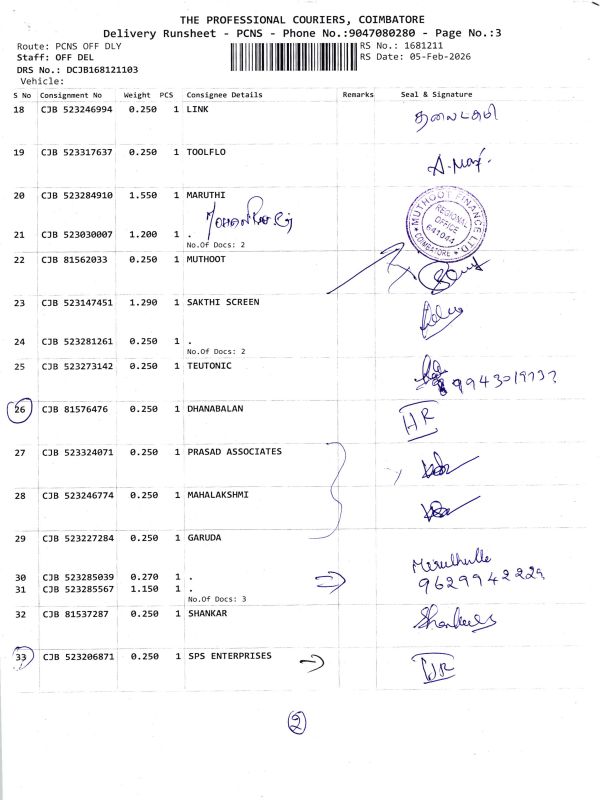 THE PROFESSIONAL COURIERS, COIMBATORE
Delivery Runsheet - PCNS - Phone No.:9047080280 - Page No.:3
Route: PCNS OFF DLY
RS No.: 1681211
Staff: OFF DEL
RS Date: 05-Feb-2026
DRS No.: DCJB168121103
Vehicle:
S No Consignment No Weight PCS Consignee Details Remarks Seal & Signature
18 CJB 523246994 0.250 1 LINK
19 CJB 523317637 0.250 1 TOOLFLO
20 CJB 523284910 1.550 1 MARUTHI
MUTHOOT FINANCE LTD.
REGIONAL OFFICE
641044
COIMBATORE
21 CJB 523030007 1.200 1 .
No.Of Docs: 2
22 CJB 81562033 0.250 1 MUTHOOT
23 CJB 523147451 1.290 1 SAKTHI SCREEN
24 CJB 523281261 0.250 1 .
No.Of Docs: 2
25 CJB 523273142 0.250 1 TEUTONIC
26 CJB 81576476 0.250 1 DHANABALAN
HR
27 CJB 523324071 0.250 1 PRASAD ASSOCIATES
28 CJB 523246774 0.250 1 MAHALAKSHMI
29 CJB 523227284 0.250 1 GARUDA
30 CJB 523285039 0.270 1 .
31 CJB 523285567 1.150 1 .
9629942229
No.Of Docs: 3
32 CJB 81537287 0.250 1 SHANKAR
33 CJB 523206871 0.250 1 SPS ENTERPRISES
2